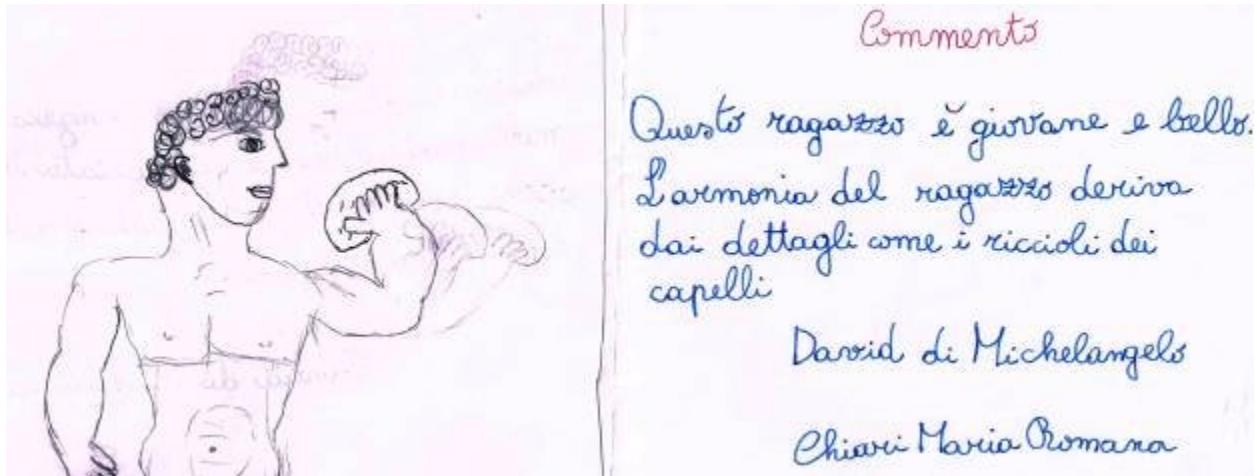 Commento
Questo ragazzo è giovane e bello.
L'armonia del ragazzo deriva
dai dettagli come i riccioli dei
capelli
David di Michelangelo
Chiari Maria Romana